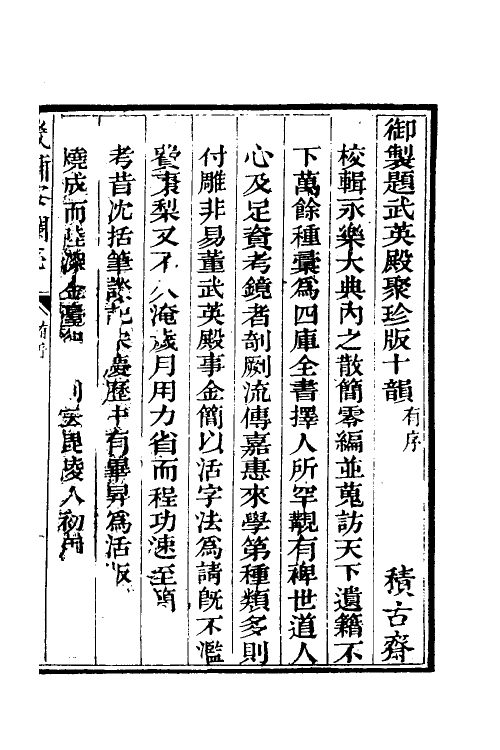 御製題武英殿聚珍版十韻有序　積古齋
校輯永樂大典內之散簡零編並蒐訪天下遺籍不
下萬餘種彙為四庫全書擇人所罕覯有裨世道人
心及足資考鏡者剞劂流傳嘉惠來學第種類多則
付雕非易董武英殿事金簡以活字法為請旣不濫
費棗梨又不久淹歲月用力省而程功速至簡
考昔沈括筆談記宋慶歷中有畢昇為活版
燒成而陸深金臺紀 則云毘陵人初用